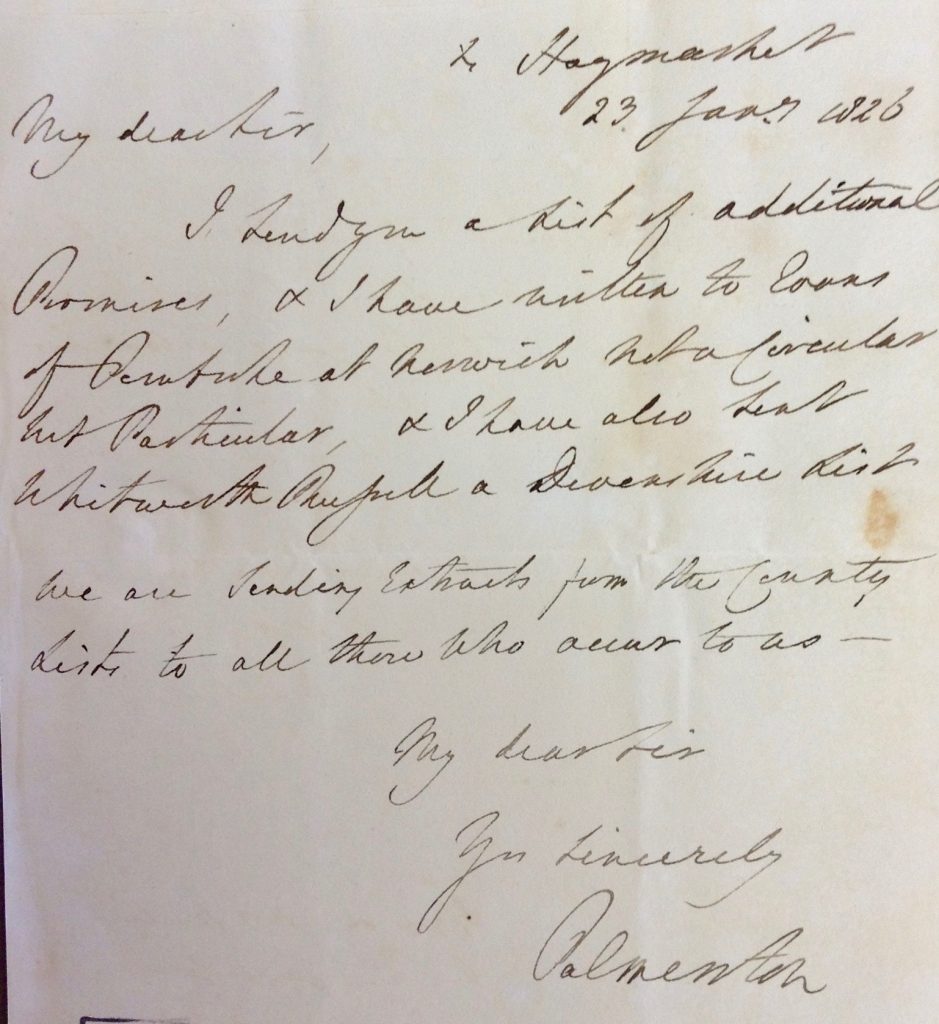 Haymarket
23 Jany 1826
My dear Sir,
I send you a List of additional
Promises, & I have written to Evans
of Pembroke at Norwich not a Circular
but Particular, & I have also sent
Whitworth Russell a Devonshire List
We are sending Extracts from the County
Lists to all those who occur to us —
My dear Sir
Yrs sincerely
Palmerston